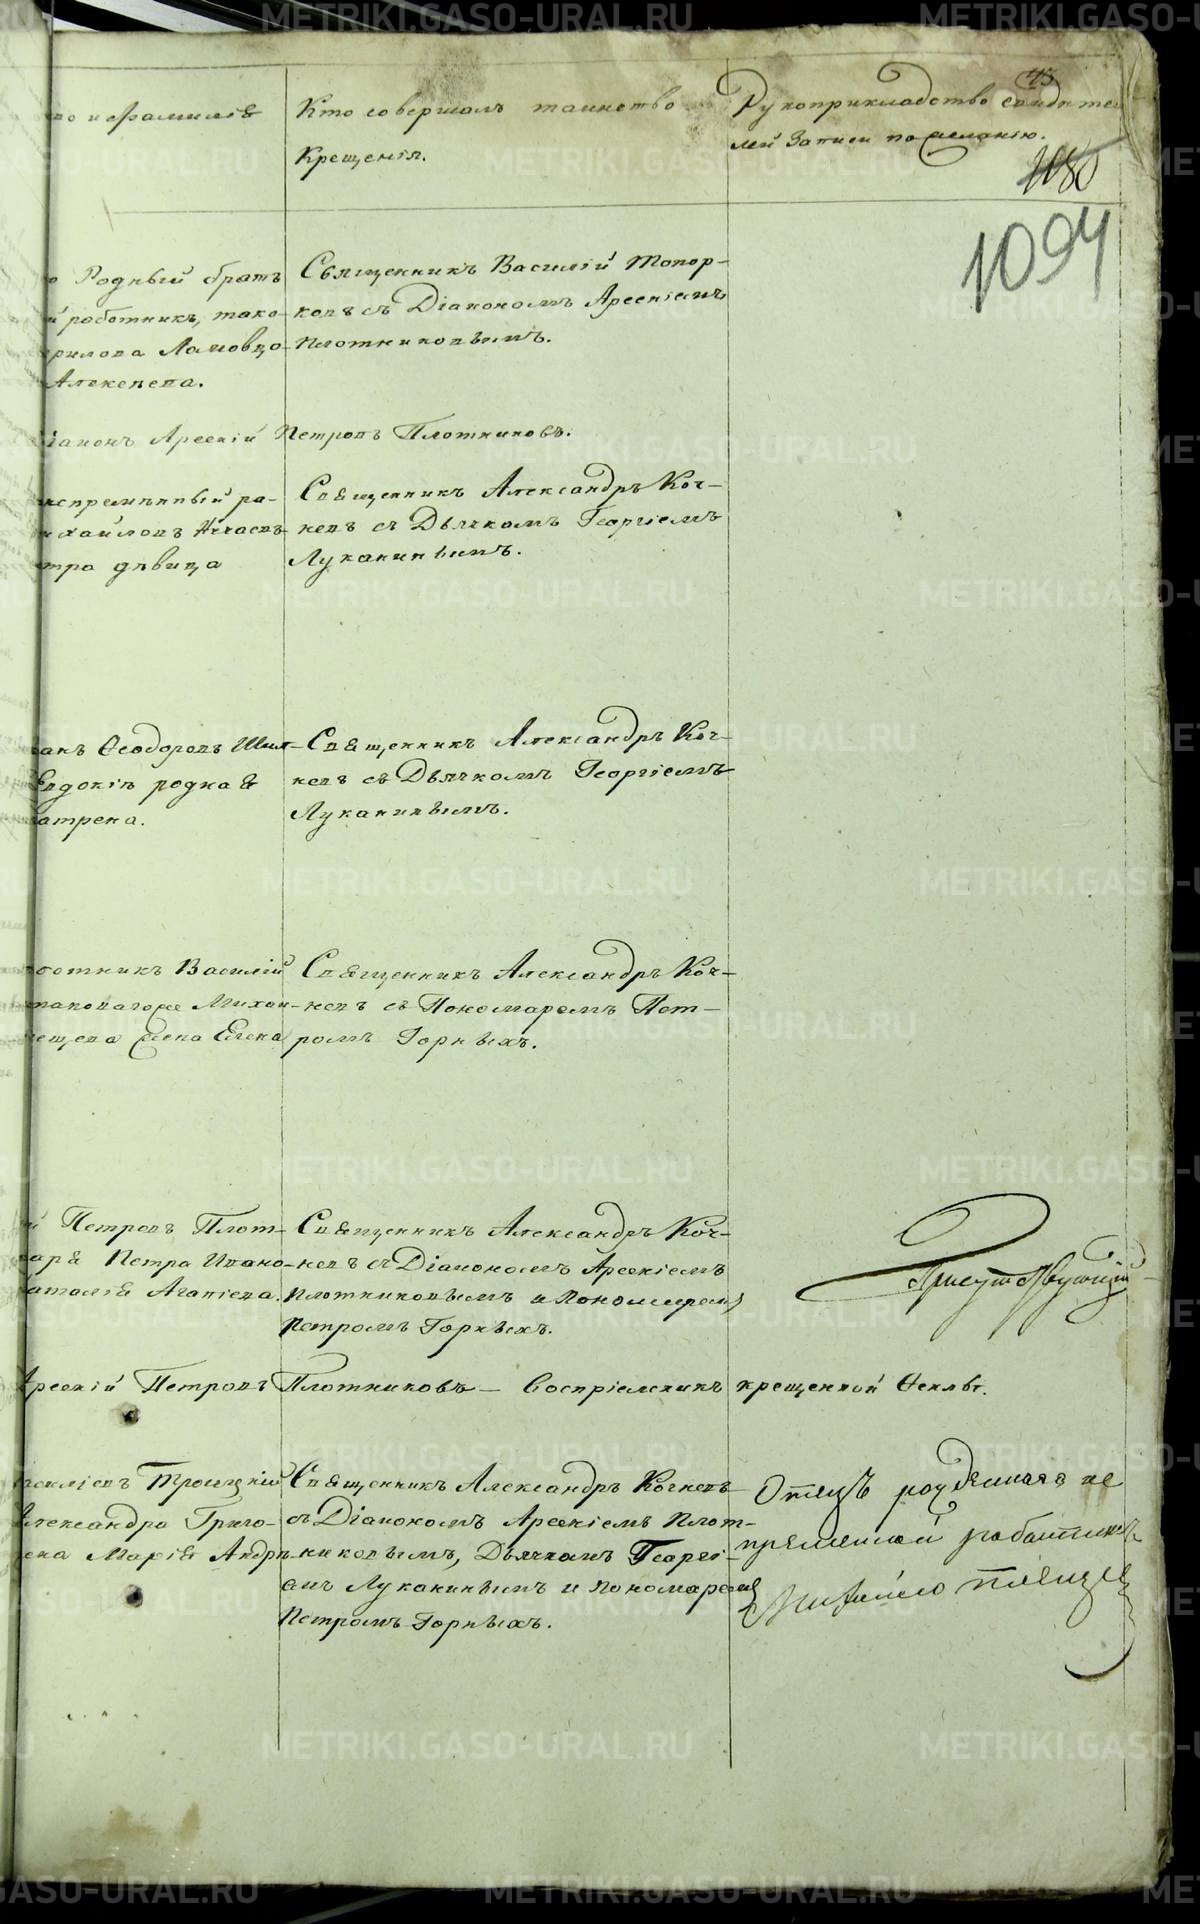 43
но и фамилія
Кто совершалъ таинство
Крещенія.
Рукоприкладство свидѣте
лей записи по желанію.
1180
1094
Родный братъ
й работникъ, тако-
рилова
Алексѣева.
Священникъ Василій Топор-
ковъ съ Діакономъ Арсеніемъ
Плотниковымъ.
іаконъ Арсеній Петровъ Плотниковъ.
непремѣнный ра-
ихайловъ
тра дѣвица
Священникъ Александръ Коч-
невъ съ Дьячкомъ Георгіемъ
Луканинымъ.
анъ Ѳеодоровъ
Евдокія родная
атрена.
Священникъ Александръ Коч-
невъ съ Дьячкомъ Георгіемъ
Луканинымъ.
отникъ Василій
таковагоже Михаи-
ещева жена Елена
Священникъ Александръ Коч-
невъ съ Пономаремъ Пет-
ромъ Горныхъ.
й Петровъ Плот-
аря Петра Ивано-
аталія Агапіева.
Священникъ Александръ Коч-
невъ съ Діакономъ Арсеніемъ
Плотниковымъ и Пономаремъ
Петромъ Горныхъ.
Присутствующій
Арсеній Петровъ Плотниковъ – Воспріемникъ крещенной Ѳеклы.
асиліевъ Троицкій
Александра Григо-
ена Марія Андрѣ-
Священникъ Александръ Кочневъ
съ Діакономъ Арсеніемъ Плот-
никовымъ, Дьячкомъ Георгі-
емъ Луканинымъ и Пономаремъ
Петромъ Горныхъ.
Отецъ рожденнаго не
премѣнной работникъ
Михаило